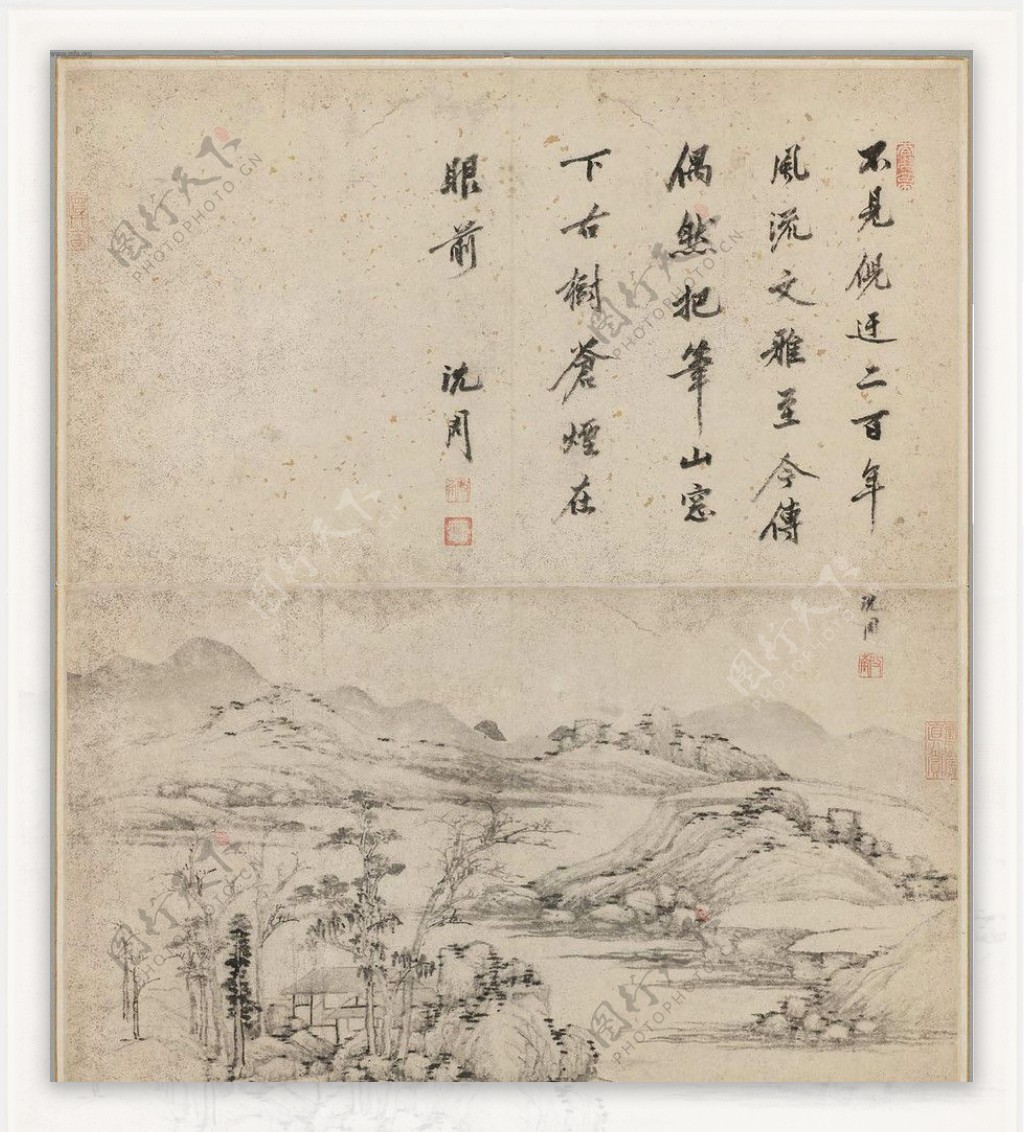 不見倪迂二百年
風流文雅至今傳
偶然把筆山窓
下古樹蒼煙在
眼前
沈周
沈周
www.mfa.org
图行天下
PHOTOPHOTO.CN
图行天下
PHOTOPHOTO.CN
图行天下
图行天下
PHOTOPHOTO.CN
图行天下
PHOTOPHOTO.CN
图行天下
PHOTOPHOTO.CN